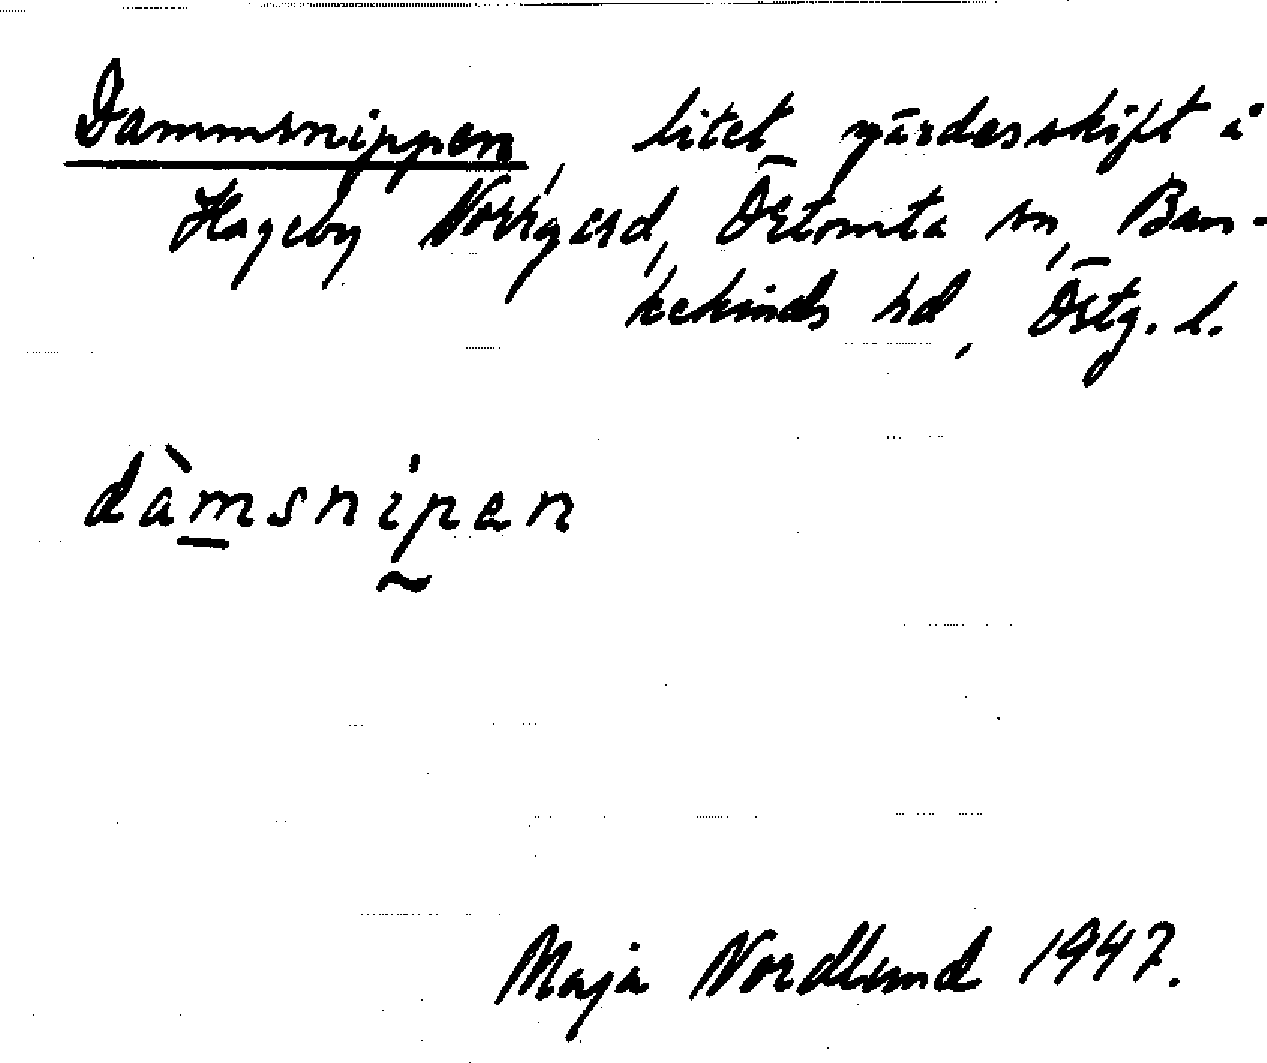 Dammsnippen, litet gärdesskift i
Hageby Norrgård, Östomta sn, Ban-
kekinds hd, Östg. l.
dàmsnipen
Maja Nordlund 1947.